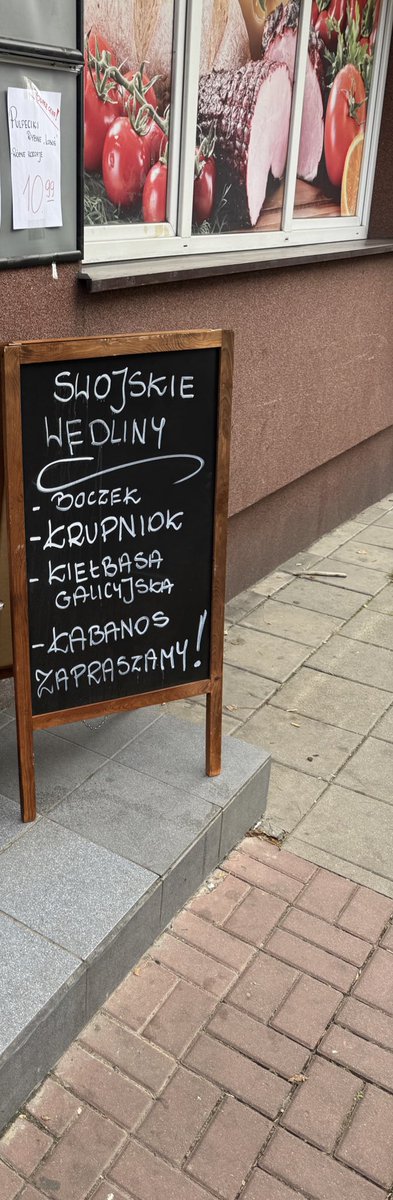 PULPECIKI
RYBNE
RÓŻNE RODZAJE
10,99
SWOJSKIE
WĘDLINY
- BOCZEK
- KRUPNIOK
- KIEŁBASA
GALICYJSKA
- KABANOS
ZAPRASZAMY!